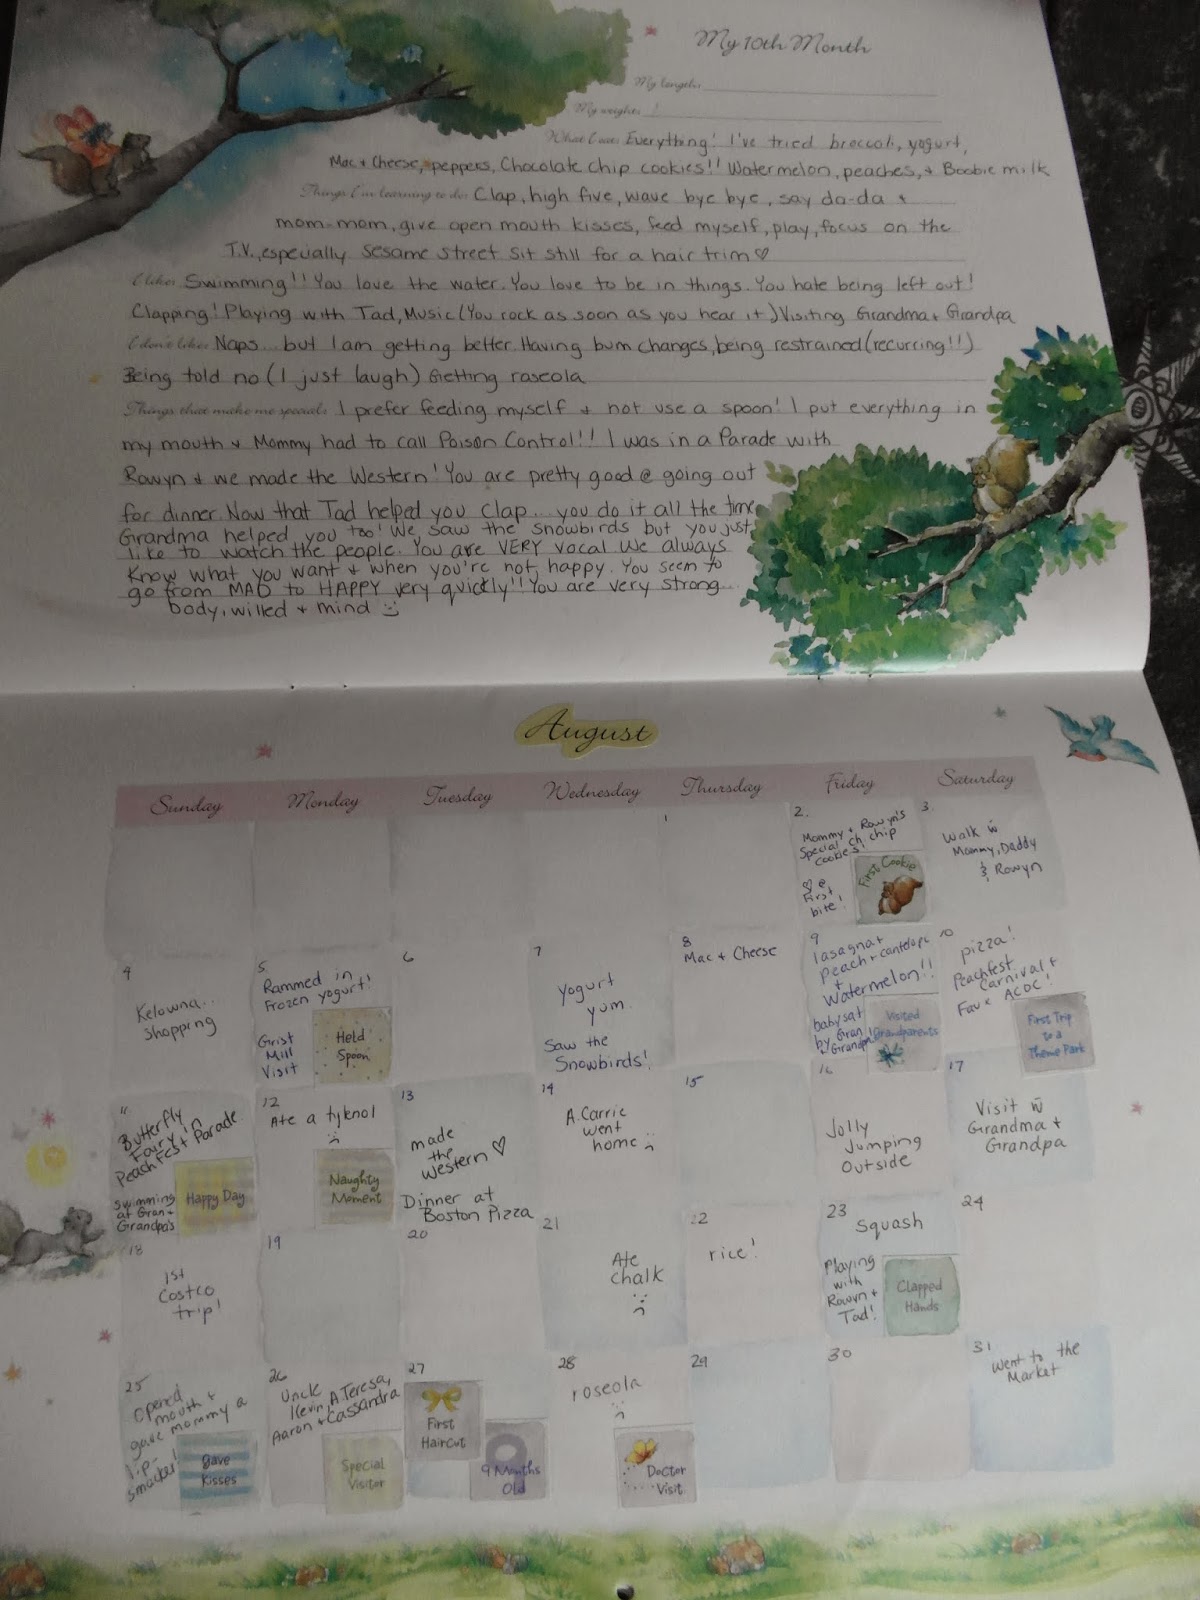 My 10th Month
My length:
My weight:
What I eat: Everything! I've tried broccoli, yogurt,
Mac + Cheese, peppers, Chocolate Chip cookies!! Watermelon, peaches, + Boobie milk
Things I'm learning to do: Clap, high five, wave bye bye, say da-da +
mom-mom, give open mouth kisses, feed myself, play, focus on the
T.V., especially Sesame Street Sit still for a hair trim♡
I like: Swimming!! You love the water. You love to be in things. You hate being left out!
Clapping! Playing with Tad, Music (You rock as soon as you hear it) Visiting Grandma + Grandpa
I don't like: Naps... but I am getting better. Having bum changes, being restrained (recurring!!)
Being told no (I just laugh) Getting roseola
Things that make me special: I prefer feeding myself + not use a spoon! I put everything in
my mouth + Mommy had to call Poison Control!! I was in a Parade with
Rowyn + we made the Western! You are pretty good @ going out
for dinner. Now that Tad helped you Clap... you do it all the time
Grandma helped you too! We saw the Snowbirds but you just
like to watch the people. You are VERY vocal we always
know what you want + when you're not happy. You seem to
go from MAD to HAPPY very quickly!! You are very strong...
body, willed + mind
August
Sunday Monday Tuesday Wednesday Thursday Friday Saturday
1
2.
Mommy + Rowyn's
Special Ch. chip
Cookies!
♡ @
First
bite!
First Cookie
3.
Walk w̄
Mommy, Daddy
& Rowyn
4
Kelowna...
Shopping
5
Rammed in
Frozen yogurt!
Grist
Mill
Visit
Held
Spoon
6
7
yogurt
yum.
Saw the
Snowbirds!
8
Mac + Cheese
9
lasagna +
peach + cantelope
+
Watermelon!!
babysat
by Gran
+ Grandpa!
Visited
Grandparents
10
pizza!
Peachfest
Carnival +
Fake ACDC!
First Trip
to a
Theme Park
11
Butterfly
Fairy in
PeachFest Parade
Swimming
at Gran +
Grandpa's
Happy Day
12
Ate a tylenol
Naughty
Moment
13
made
the
Western ♡
Dinner at
Boston Pizza
14
A. Carrie
went
home
15
16
Jolly
Jumping
Outside
17
Visit w̄
Grandma +
Grandpa
18
1st
Costco
trip!
19
20
21
Ate
Chalk
22
rice!
23
Squash
Playing
with
Rowyn +
Tad!
Clapped
Hands
24
25
Opened
mouth +
gave mommy a
lip-
smacker!
Gave
Kisses
26
Uncle
Kevin, A. Teresa,
Aaron + Cassandra
Special
Visitor
27
First
Haircut
9 Months
Old
28
roseola
Doctor
Visit
29
30
31
Went to the
Market